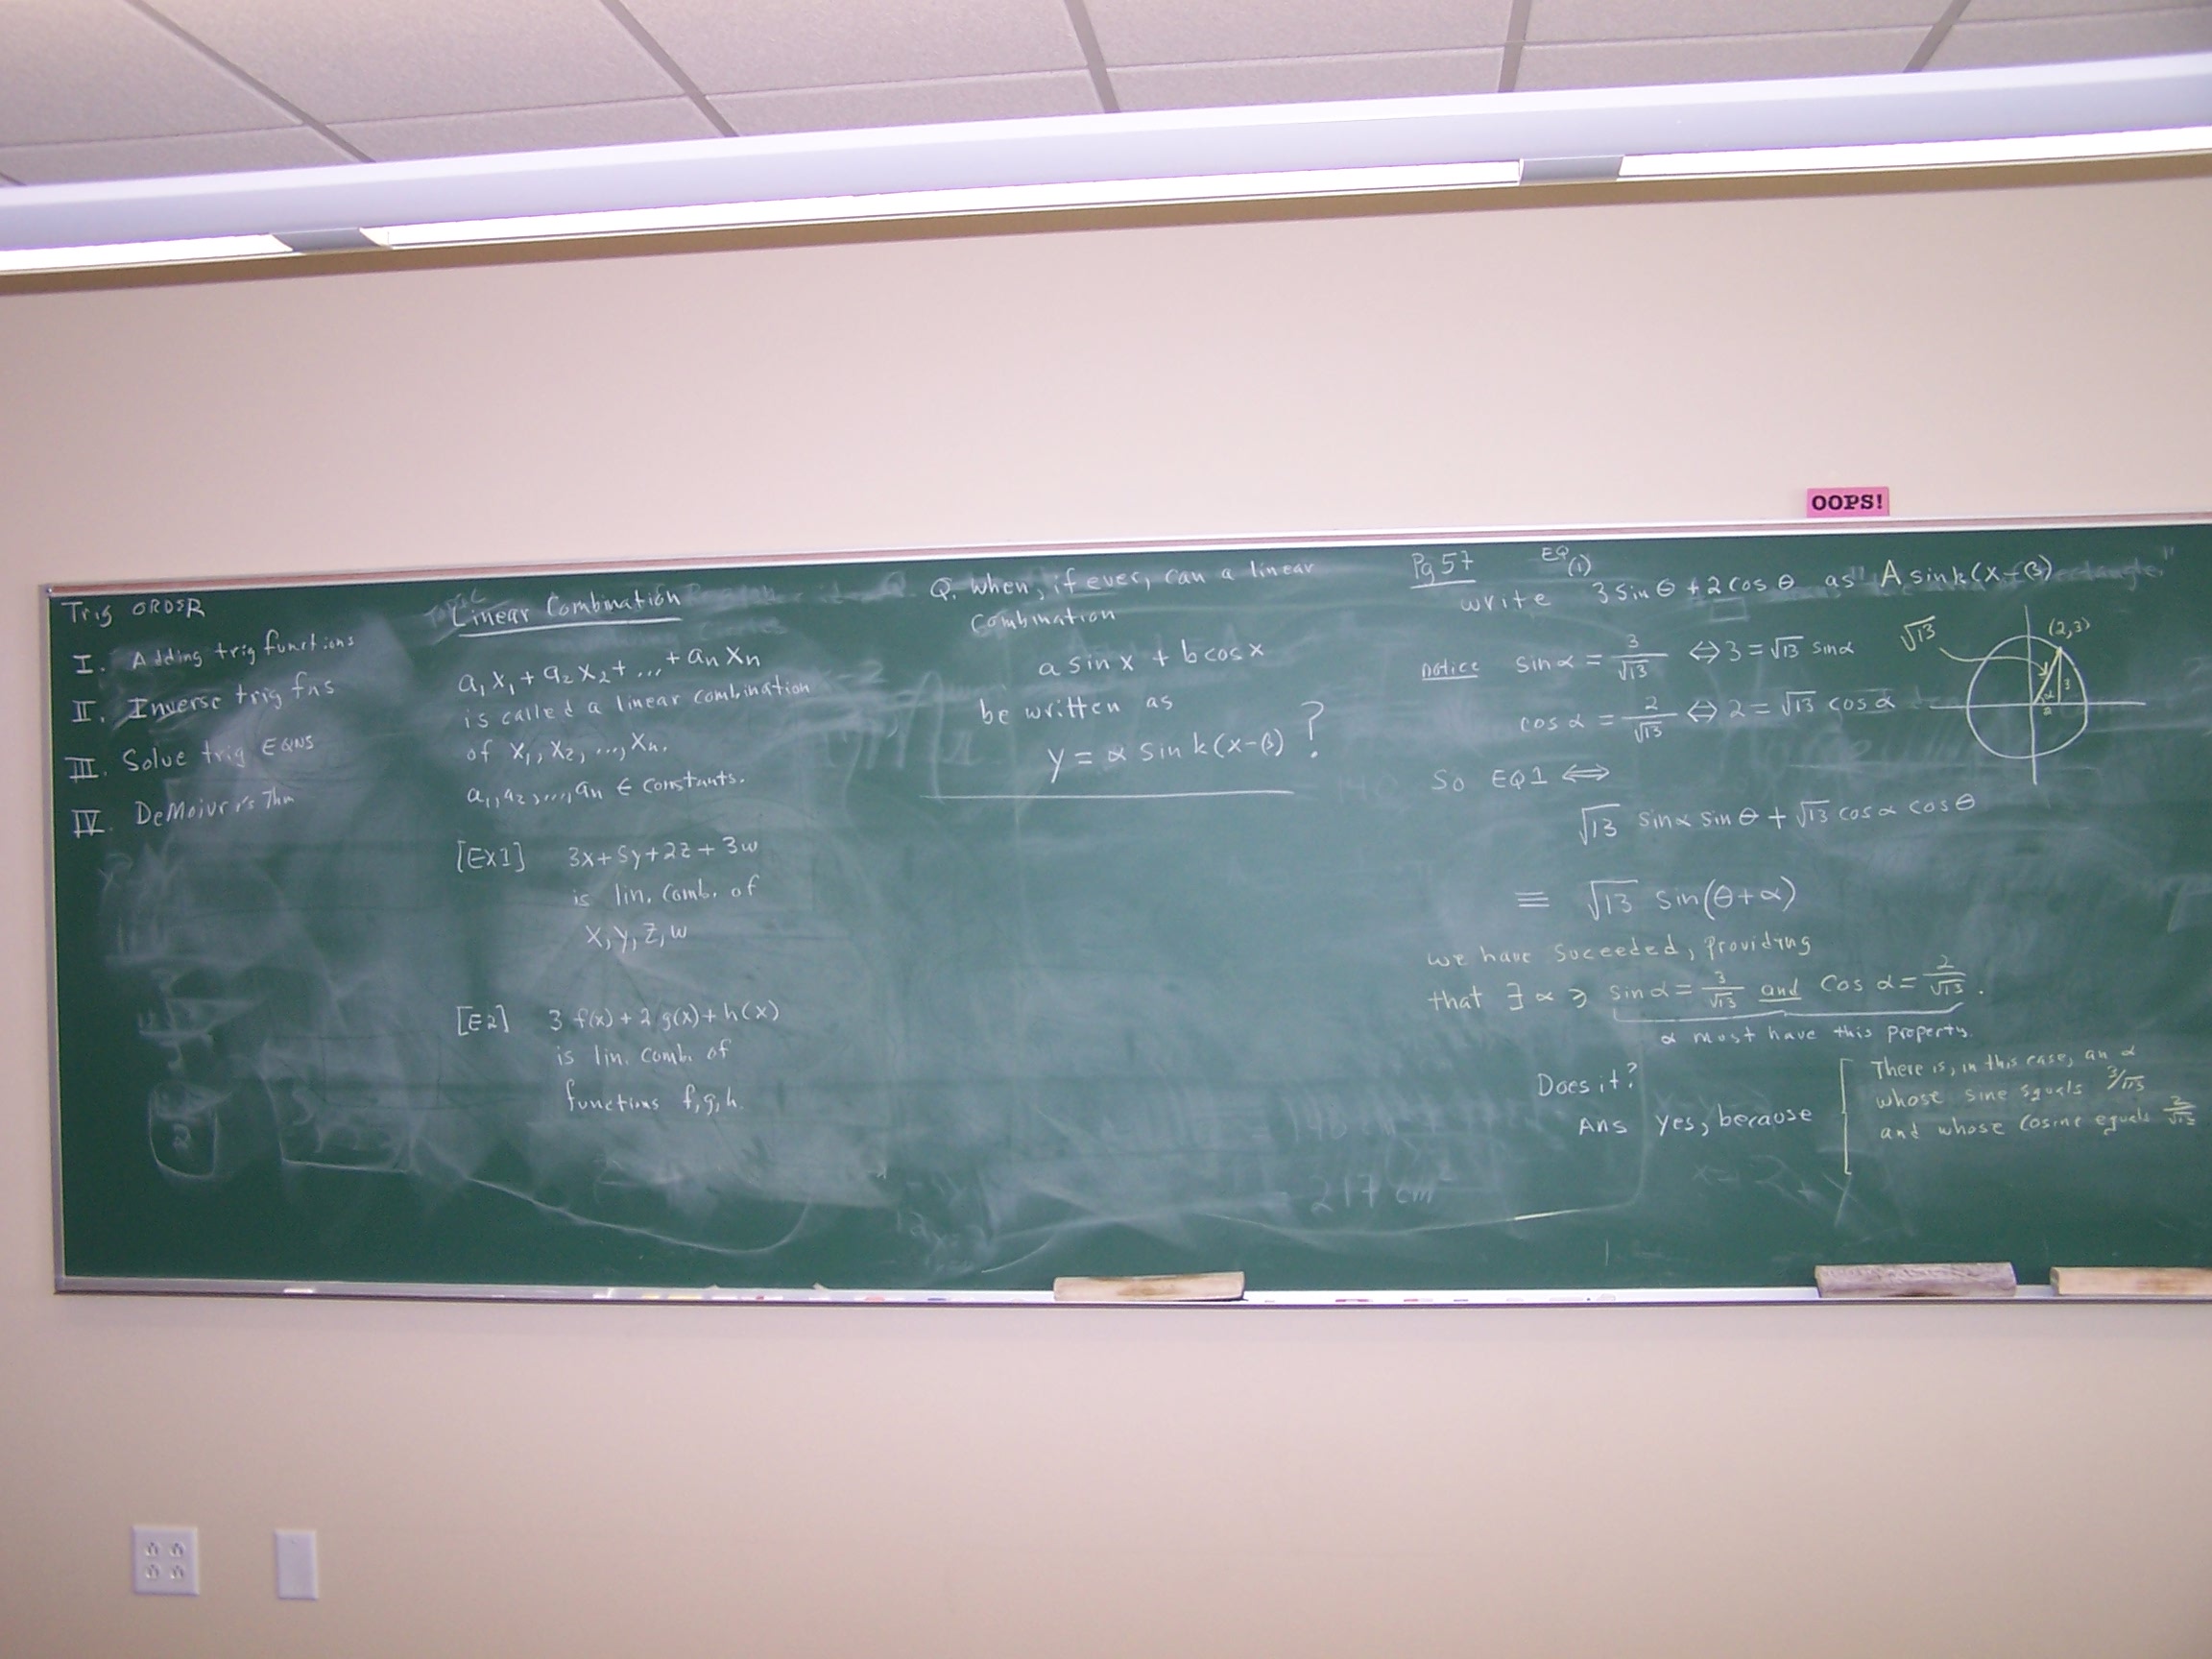 OOPS!
Trig ORDER
I. Adding trig functions
II. Inverse trig fns
III. Solve trig EQNS
IV. DeMoivre's Thm
Linear Combination
a₁x₁ + a₂x₂ + ... + aₙxₙ
is called a linear combination
of x₁, x₂, ..., xₙ.
a₁, a₂, ..., aₙ ∈ constants.
[EX1] 3x+5y+2z+3w
is lin. comb. of
x, y, z, w
[E2] 3 f(x) + 2 g(x) + h(x)
is lin. comb. of
functions f, g, h.
Q. When, if ever, can a linear
combination
a sin x + b cos x
be written as
y = α sin k(x-β) ?
217 cm
Pg 57 EQ (1)
write 3 sin θ + 2 cos θ as "A sin k(x-β)"
notice sin α = 3/√13 ⇔ 3 = √13 sin α
cos α = 2/√13 ⇔ 2 = √13 cos α
√13
(2,3)
α 3
2
So EQ1 ⇔
√13 sin α sin θ + √13 cos α cos θ
≡ √13 sin(θ+α)
we have suceeded, providing
that ∃ α ∋ sin α = 3/√13 and cos α = 2/√13 .
α must have this property.
Does it?
Ans yes, because
There is, in this case, an α
whose sine equals 3/√13
and whose cosine equals 2/√13